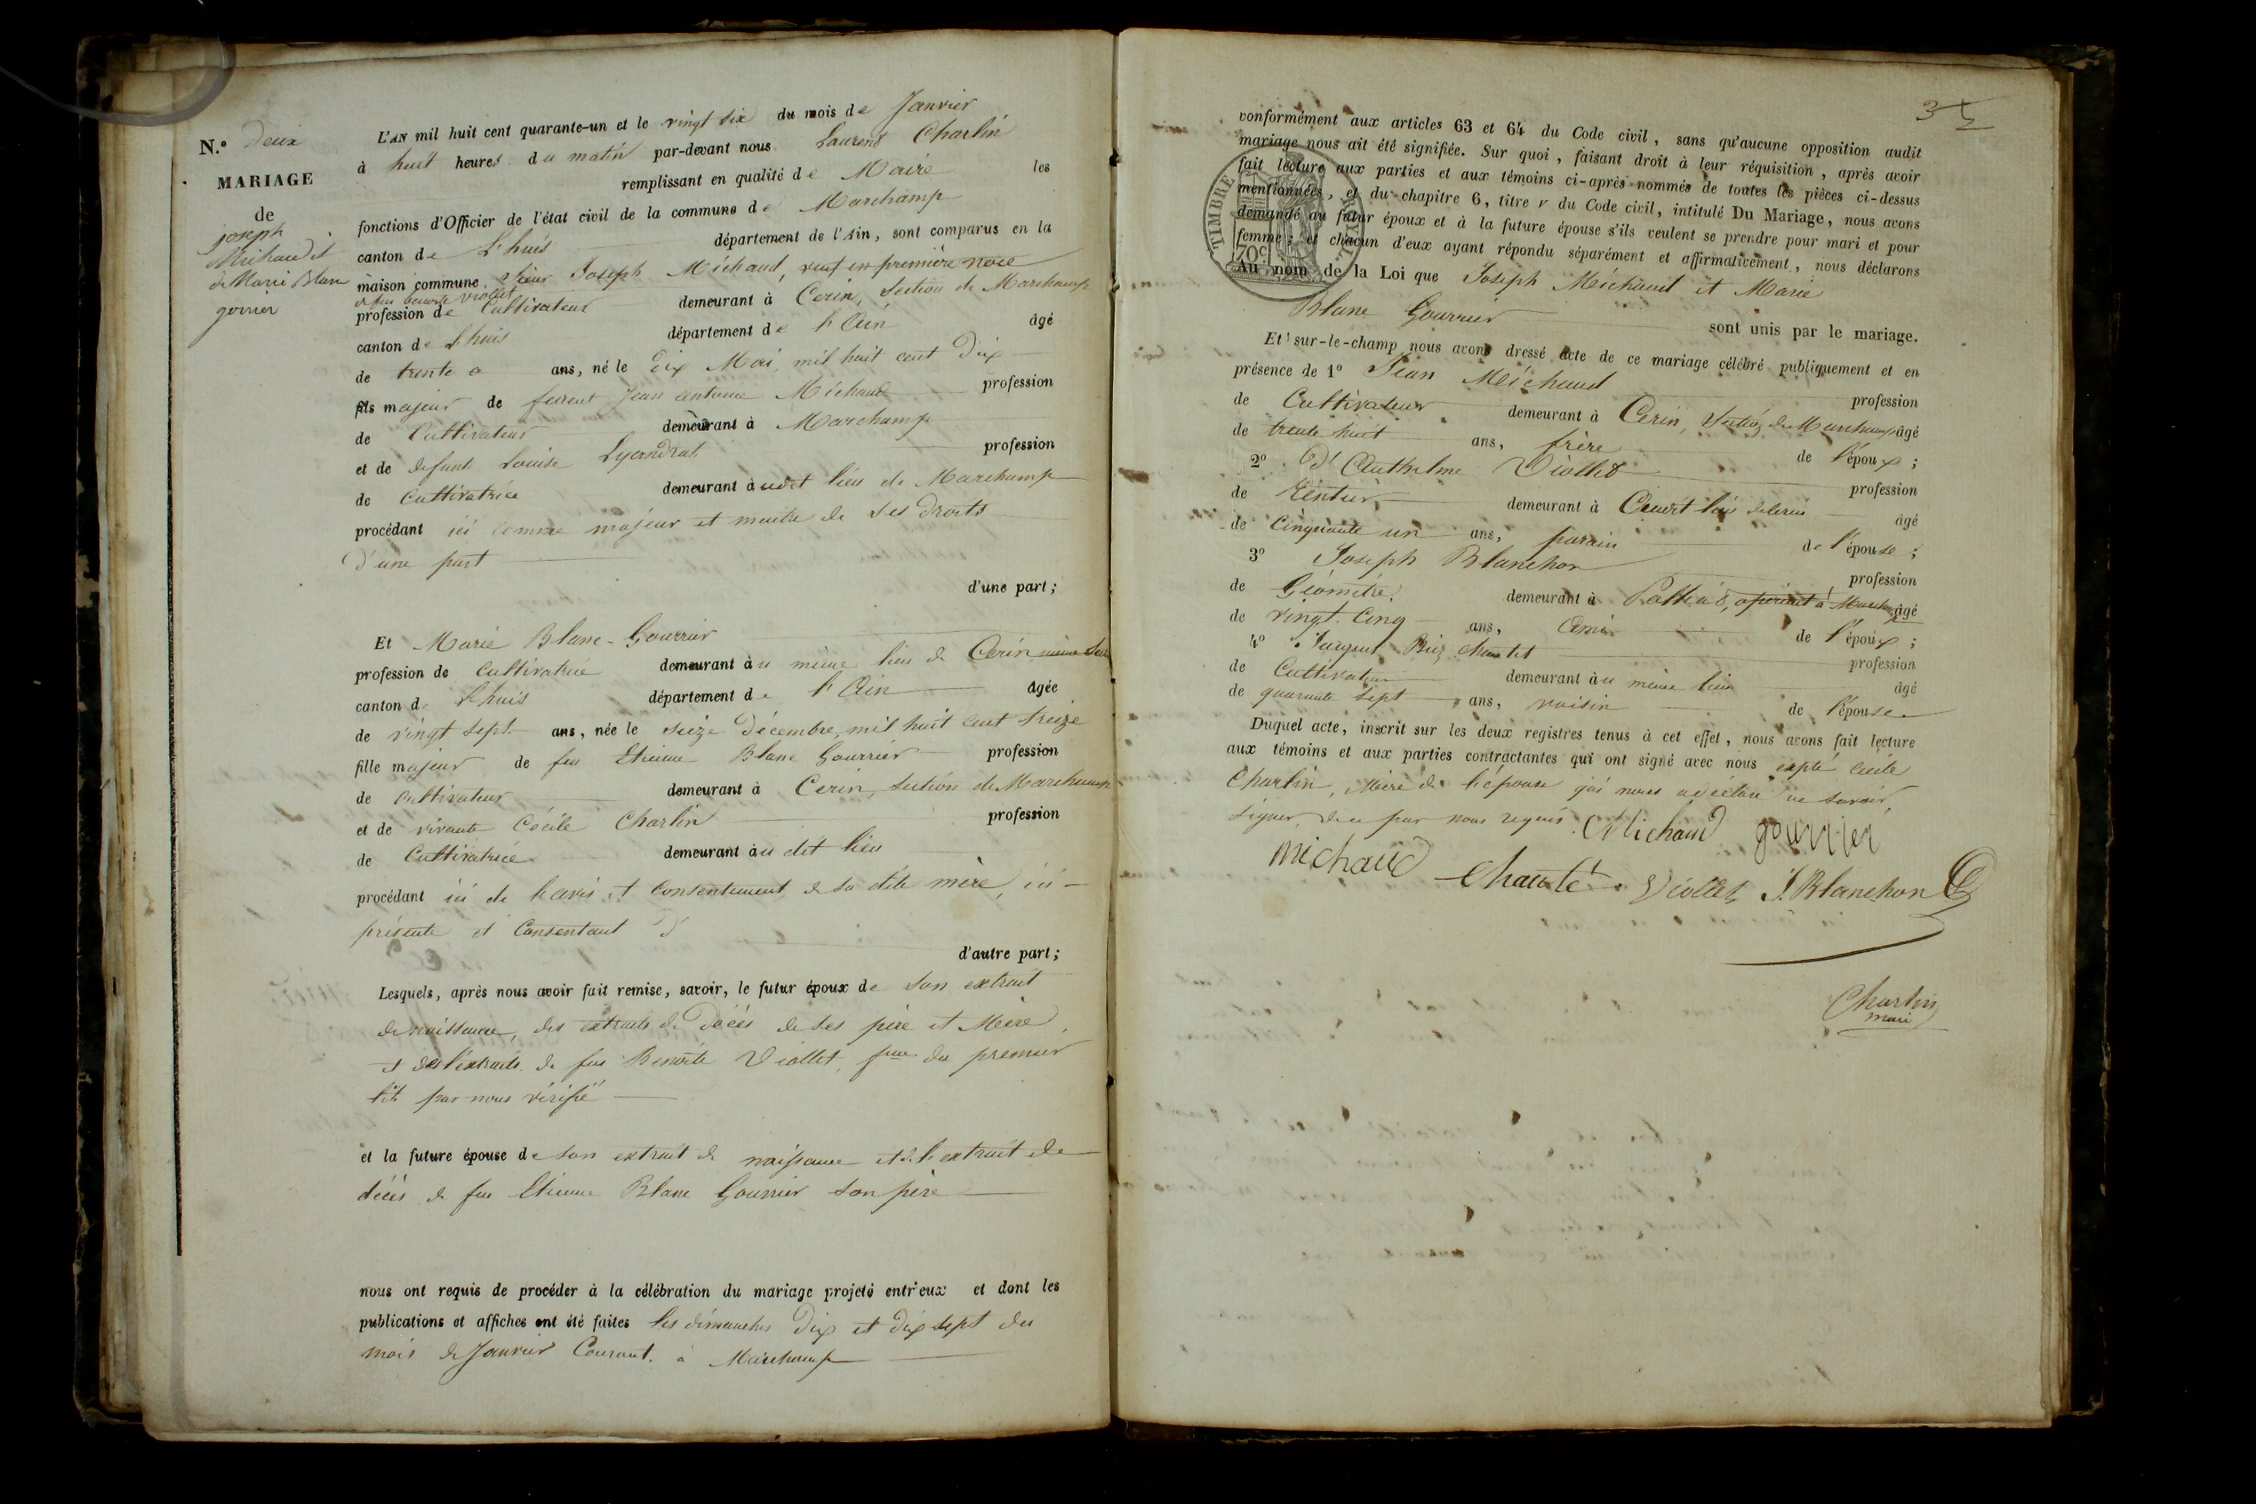 N.o Deux
MARIAGE
de
joseph
Michaud et
de Marie Blanc
gourrier
L'AN mil huit cent quarante-un et le vingt six du mois de Janvier
à huit heures du matin par-devant nous Laurend Charlin
remplissant en qualité de Maire les
fonctions d'Officier de l'état civil de la commune de Marchamp
canton de Lhuis département de l'Ain, sont comparus en la
maison commune Sieur Joseph Michaud, veuf en première noce
de feu benoite Viollet
profession de Cultivateur demeurant à Cerin, Section de Marchamp
canton de Lhuis département de l'Ain âgé
de trente ans, né le dix Mai, mil huit cent dix
fils majeur de Jean antoine Michaud profession
de Cultivateur demeurant à Marchamp
et de defunt Louise Lyandrat profession
de Cultivatrice demeurant audit lieu de Marchamp
procédant ici comme majeur et maitre de ses droits
d'une part
d'une part;
Et Marie Blanc-Gourrier
profession de Cultivatrice demeurant au même lieu de Cerin
canton de Lhuis département de l'Ain âgée
de vingt sept ans, née le seize décembre, mil huit cent treize
fille majeur de feu Etienne Blanc Gourrier profession
de cultivateur demeurant à Cerin, section de Marchamp
et de vivante Cécile Charlin profession
de Cultivatrice demeurant au dit lieu
procédant ici de l'avis et Consentement de sa dite mère, ici-
présente et Consentant
d'autre part;
Lesquels, après nous avoir fait remise, savoir, le futur époux de son extrait
de naissance, des extraits de Décès de ses père et Mère,
et de l'extraits de feu Benoîte Viollet, fme du premier
lit par nous vérifié
et la future épouse de son extrait de naissance et de l'extrait de
décès de feu Etienne Blanc Gourrier son père
nous ont requis de procéder à la célébration du mariage projeté entr'eux et dont les
publications et affiches ont été faites les dimanches dix et dix sept du
mois de Janvier Courant. à Marchamp
conformément aux articles 63 et 64 du Code civil, sans qu'aucune opposition audit
mariage nous ait été signifiée. Sur quoi, faisant droit à leur réquisition, après avoir
fait lecture aux parties et aux témoins ci-après nommés de toutes les pièces ci-dessus
mentionnées, et du chapitre 6, titre V du Code civil, intitulé Du Mariage, nous avons
demandé au futur époux et à la future épouse s'ils veulent se prendre pour mari et pour
femme; et chacun d'eux ayant répondu séparément et affirmativement, nous déclarons
Au nom de la Loi que Joseph Michaud et Marie
Blanc Gourrier sont unis par le mariage.
TIMBRE ROYAL
70c
Et sur-le-champ nous avons dressé acte de ce mariage célébré publiquement et en
présence de 1o Jean Michaud profession
de Cultivateur demeurant à Cerin, Section de Marchamp âgé
de trente huit ans, frère de l'époux;
2o Anthelme Viollet profession
de Rentier demeurant à âgé
de Cinquante un ans, parain de l'épouse;
3o Joseph Blanchon profession
de Géomètre demeurant à âgé
de vingt-Cinq ans, Ami de l'époux;
4o profession
de Cultivateur demeurant au même lieu âgé
de quarante sept ans, voisin de l'épouse.
Duquel acte, inscrit sur les deux registres tenus à cet effet, nous avons fait lecture
aux témoins et aux parties contractantes qui ont signé avec nous expté Cécile
Charlin, Mère de l'épouse qui nous a déclaré ne savoir,
signer, de ce par nous requis. Michaud gourrier
michaud Chantet Viollet J. Blanchon
Charlin
maire